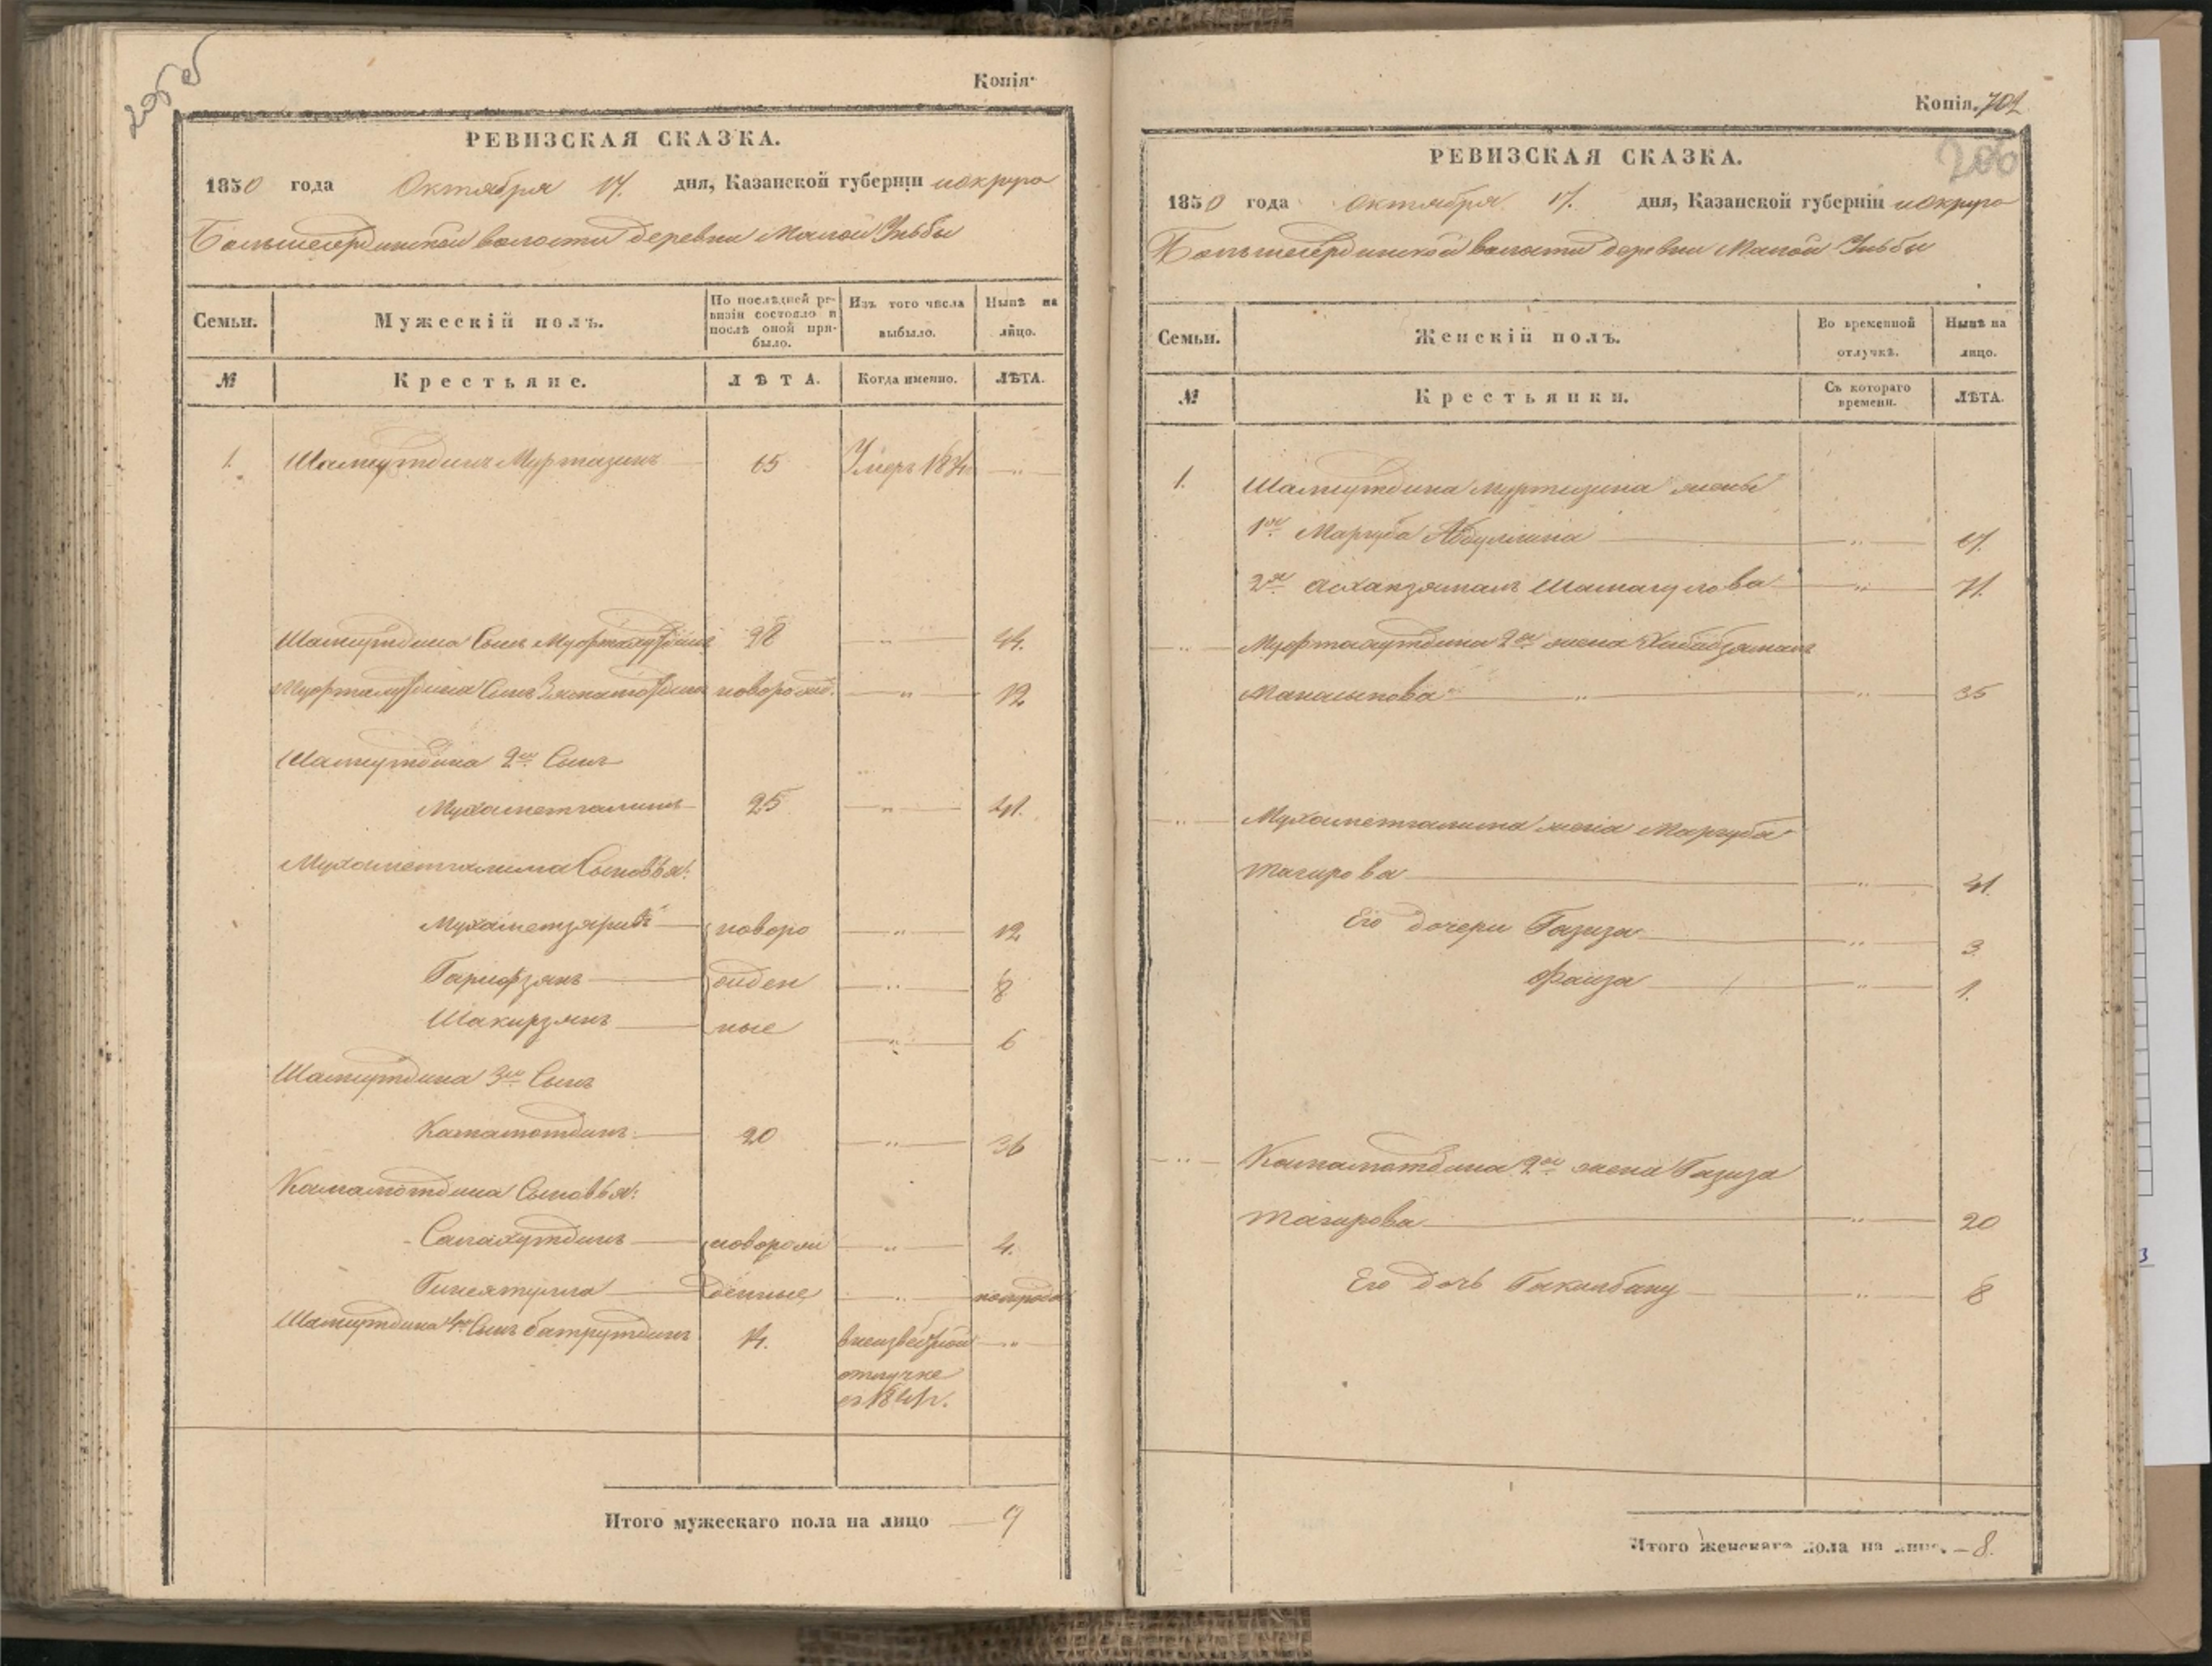 205 об
Копія
РЕВИЗСКАЯ СКАЗКА.
1850 года Октября 17. дня, Казанской губерніи и округа
Большесердинской волости деревни Малой Уньбы
Семьи. Мужескій полъ. По послѣдней ревизіи состояло и послѣ оной прибыло. Изъ того числа выбыло. Нынѣ на лицо.
№ Крестьяне. ЛѢТА. Когда именно. ЛѢТА.
1. Шамсутдинъ Муртазинъ 65 Умеръ —„—
Шамсутдина Сынъ 28 —„— 44.
Сынъ новорожд. —„— 12
Шамсутдина 2й Сынъ
Мухаметгалимъ 25 —„— 41.
Мухаметгалима Сыновья:
новоро —„— 12
Гарифзянъ жден —„— 8
Шакирзянъ ные —„— 6
Шамсутдина 3й Сынъ
Камалотдинъ 20 —„— 36
Камалотдина Сыновья:
Салахутдинъ новорож —„— 4.
Гинеятулла денные —„— полгода
Шамсутдина 4й Сынъ батрутдинъ 14. в неизвестной —„—
отлучке
Итого мужескаго пола на лицо — 9
Копія. 702
206
РЕВИЗСКАЯ СКАЗКА.
1850 года Октября 17. дня, Казанской губерніи и округа
Большесердинской волости деревни Малой Уньбы
Семьи. Женскій полъ. Во временной отлучкѣ. Нынѣ на лицо.
№ Крестьянки. Съ котораго времени. ЛѢТА.
1. Шамсутдина Муртазина жены
1я Маргуба Абдуллина —„— 67.
2я Шамагулова —„— 71.
—„— 2я жена
—„— —„— 35
—„— Мухаметгалима жена Маргуба
Тагирова —„— 41.
Его дочери Газиза —„— 3
Фаиза —„— 1.
—„— Камалотдина 2я жена Газиза
Тагирова —„— 20
Его дочь —„— 8
Итого женскаго пола на лицо. — 8.